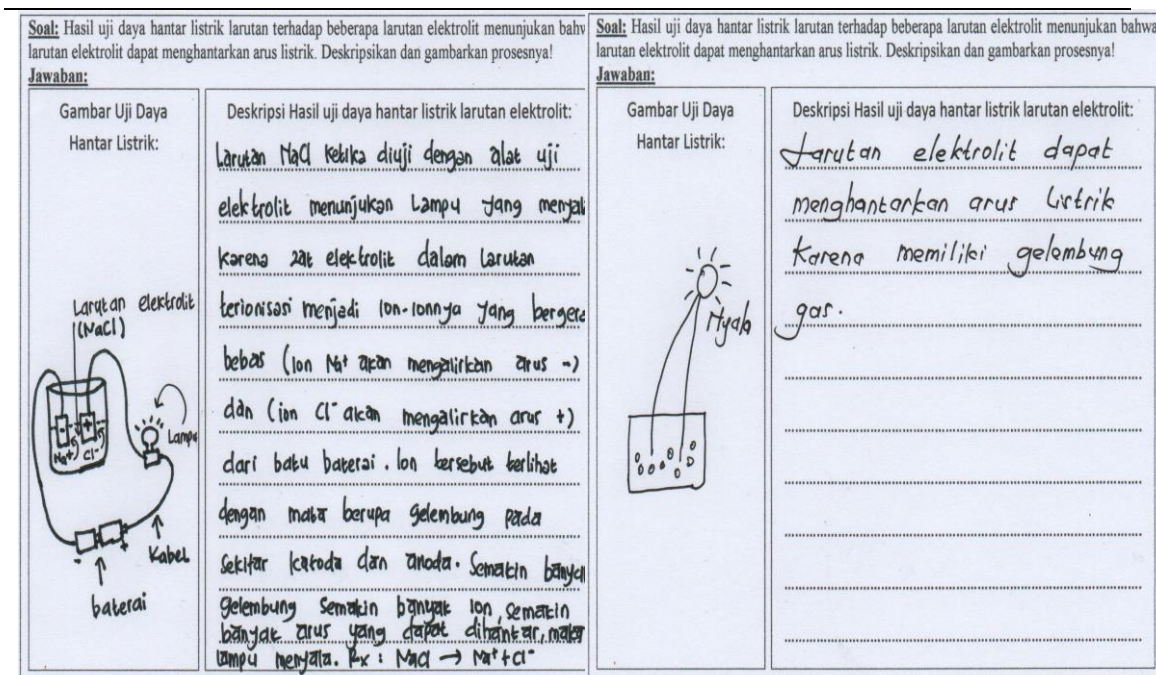 Soal: Hasil uji daya hantar listrik larutan terhadap beberapa larutan elektrolit menunjukan bahw
larutan elektrolit dapat menghantarkan arus listrik. Deskripsikan dan gambarkan prosesnya!
Jawaban:
Gambar Uji Daya
Hantar Listrik:
Larutan elektrolit
(NaCl)
-
+
Na+
Cl-
Lampu
-
+
Kabel
baterai
Deskripsi Hasil uji daya hantar listrik larutan elektrolit:
Larutan NaCl ketika diuji dengan alat uji
elektrolit menunjukan Lampu yang menyal
karena zat elektrolit dalam larutan
terionisasi menjadi Ion-Ionnya yang bergera
bebas (Ion Na+ akan mengalirkan arus -)
dan (ion Cl- akan mengalirkan arus +)
dari batu baterai. Ion tersebut terlihat
dengan mata berupa gelembung pada
Sekitar katoda dan anoda. Semakin banyak
gelembung Semakin banyak Ion, semakin
banyak arus yang dapat dihantar, maka
lampu menyala. Rx : NaCl → Na+ + Cl-
Soal: Hasil uji daya hantar listrik larutan terhadap beberapa larutan elektrolit menunjukan bahwa
larutan elektrolit dapat menghantarkan arus listrik. Deskripsikan dan gambarkan prosesnya!
Jawaban:
Gambar Uji Daya
Hantar Listrik:
Nyala
Deskripsi Hasil uji daya hantar listrik larutan elektrolit:
Larutan elektrolit dapat
menghantarkan arus Listrik
Karena memiliki gelembung
gas.